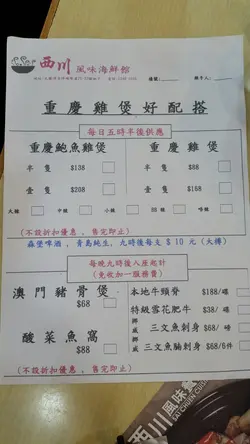 西川 風味海鮮館
檯號:______ 經手人:______
重慶雞煲好配搭
每日五時半後供應
重慶鮑魚雞煲 重慶雞煲
半隻 $138 半隻 $88
壹隻 $208 壹隻 $168
大辣 中辣 小辣 回味 啤辣
(不設折扣優惠，售完即止)
森堡啤酒，青島純生，九時後每支$10元(大樽)
每晚九時後入座起計
(免收加一服務費)
澳門豬骨煲 本地牛頸脊 $188/碟
$68 特級雪花肥牛 $38/碟
挪威三文魚刺身 $68/磅
酸菜魚窩 挪威三文魚腩刺身 $68/6件
$88
(不設折扣優惠，售完即止)
西川風味
SAI CHUEN CUISINE